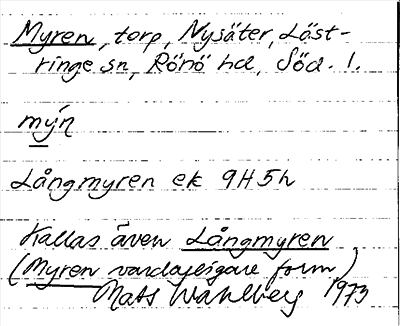 Myren, torp, Nysäter, Läst-
ringe sn, Rönö hd, Söd. l.
mýn
Långmyren ek 9H5h
Kallas även Långmyren
(Myren vardagligare form)
Mats Wahlberg 1973